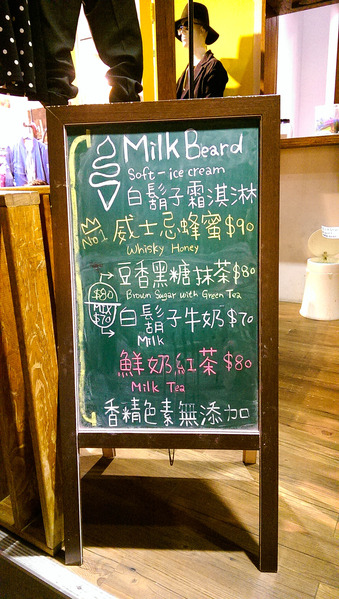 Milk Beard
Soft-ice cream
白鬍子霜淇淋
No.1 威士忌蜂蜜$90
Whisky Honey
豆香黑糖抹茶$80
Brown Sugar with Green Tea
$80
MIX
$70
白鬍子牛奶$70
Milk
鮮奶紅茶$80
Milk Tea
香精色素無添加